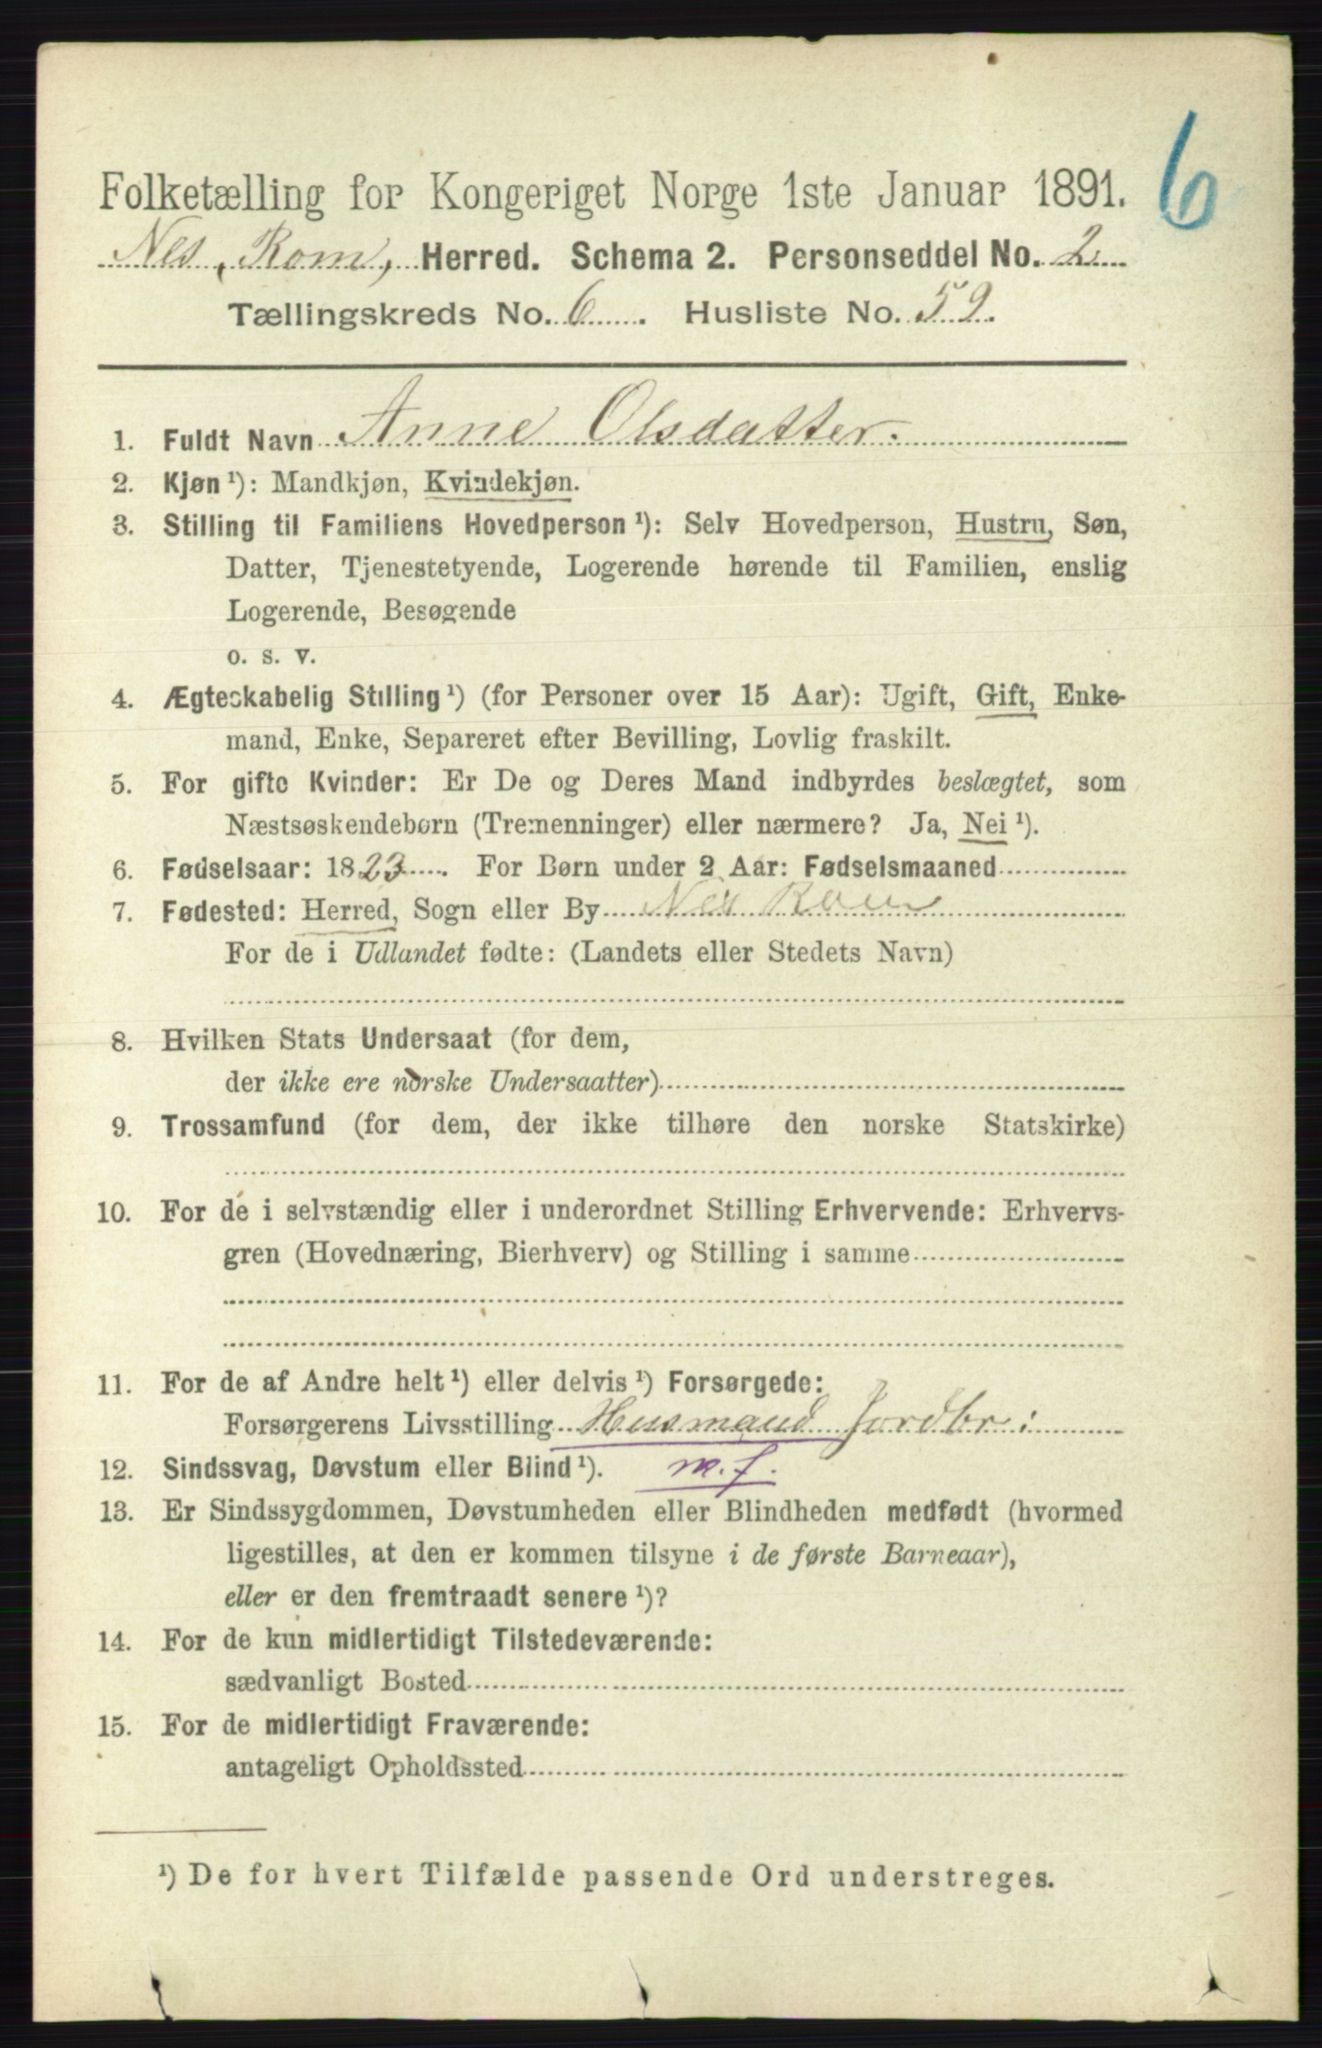 6
Folketælling for Kongeriget Norge 1ste Januar 1891.
Nes, Rom, Herred. Schema 2. Personseddel No. 2
Tællingskreds No. 6 . Husliste No. 59.
1. Fuldt Navn Anne Olsdatter.
2. Kjøn ¹): Mandkjøn, Kvindekjøn.
3. Stilling til Familiens Hovedperson ¹): Selv Hovedperson, Hustru, Søn,
Datter, Tjenestetyende, Logerende hørende til Familien, enslig
Logerende, Besøgende
o. s. v.
4. Ægteskabelig Stilling ¹) (for Personer over 15 Aar): Ugift, Gift, Enke-
mand, Enke, Separeret efter Bevilling, Lovlig fraskilt.
5. For gifte Kvinder: Er De og Deres Mand indbyrdes beslægtet, som
Næstsøskendebørn (Tremenninger) eller nærmere? Ja, Nei ¹).
6. Fødselsaar: 1823. For Børn under 2 Aar: Fødselsmaaned
7. Fødested: Herred, Sogn eller By Nes Rom
For de i Udlandet fødte: (Landets eller Stedets Navn)
8. Hvilken Stats Undersaat (for dem,
der ikke ere norske Undersaatter)
9. Trossamfund (for dem, der ikke tilhøre den norske Statskirke)
10. For de i selvstændig eller i underordnet Stilling Erhvervende: Erhvervs-
gren (Hovednæring, Bierhverv) og Stilling i samme
11. For de af Andre helt ¹) eller delvis ¹) Forsørgede:
Forsørgerens Livsstilling Husmand Jordbr:
12. Sindssvag, Døvstum eller Blind ¹). m. f.
13. Er Sindssygdommen, Døvstumheden eller Blindheden medfødt (hvormed
ligestilles, at den er kommen tilsyne i de første Barneaar),
eller er den fremtraadt senere ¹)?
14. For de kun midlertidigt Tilstedeværende:
sædvanligt Bosted
15. For de midlertidigt Fraværende:
antageligt Opholdssted
¹) De for hvert Tilfælde passende Ord understreges.